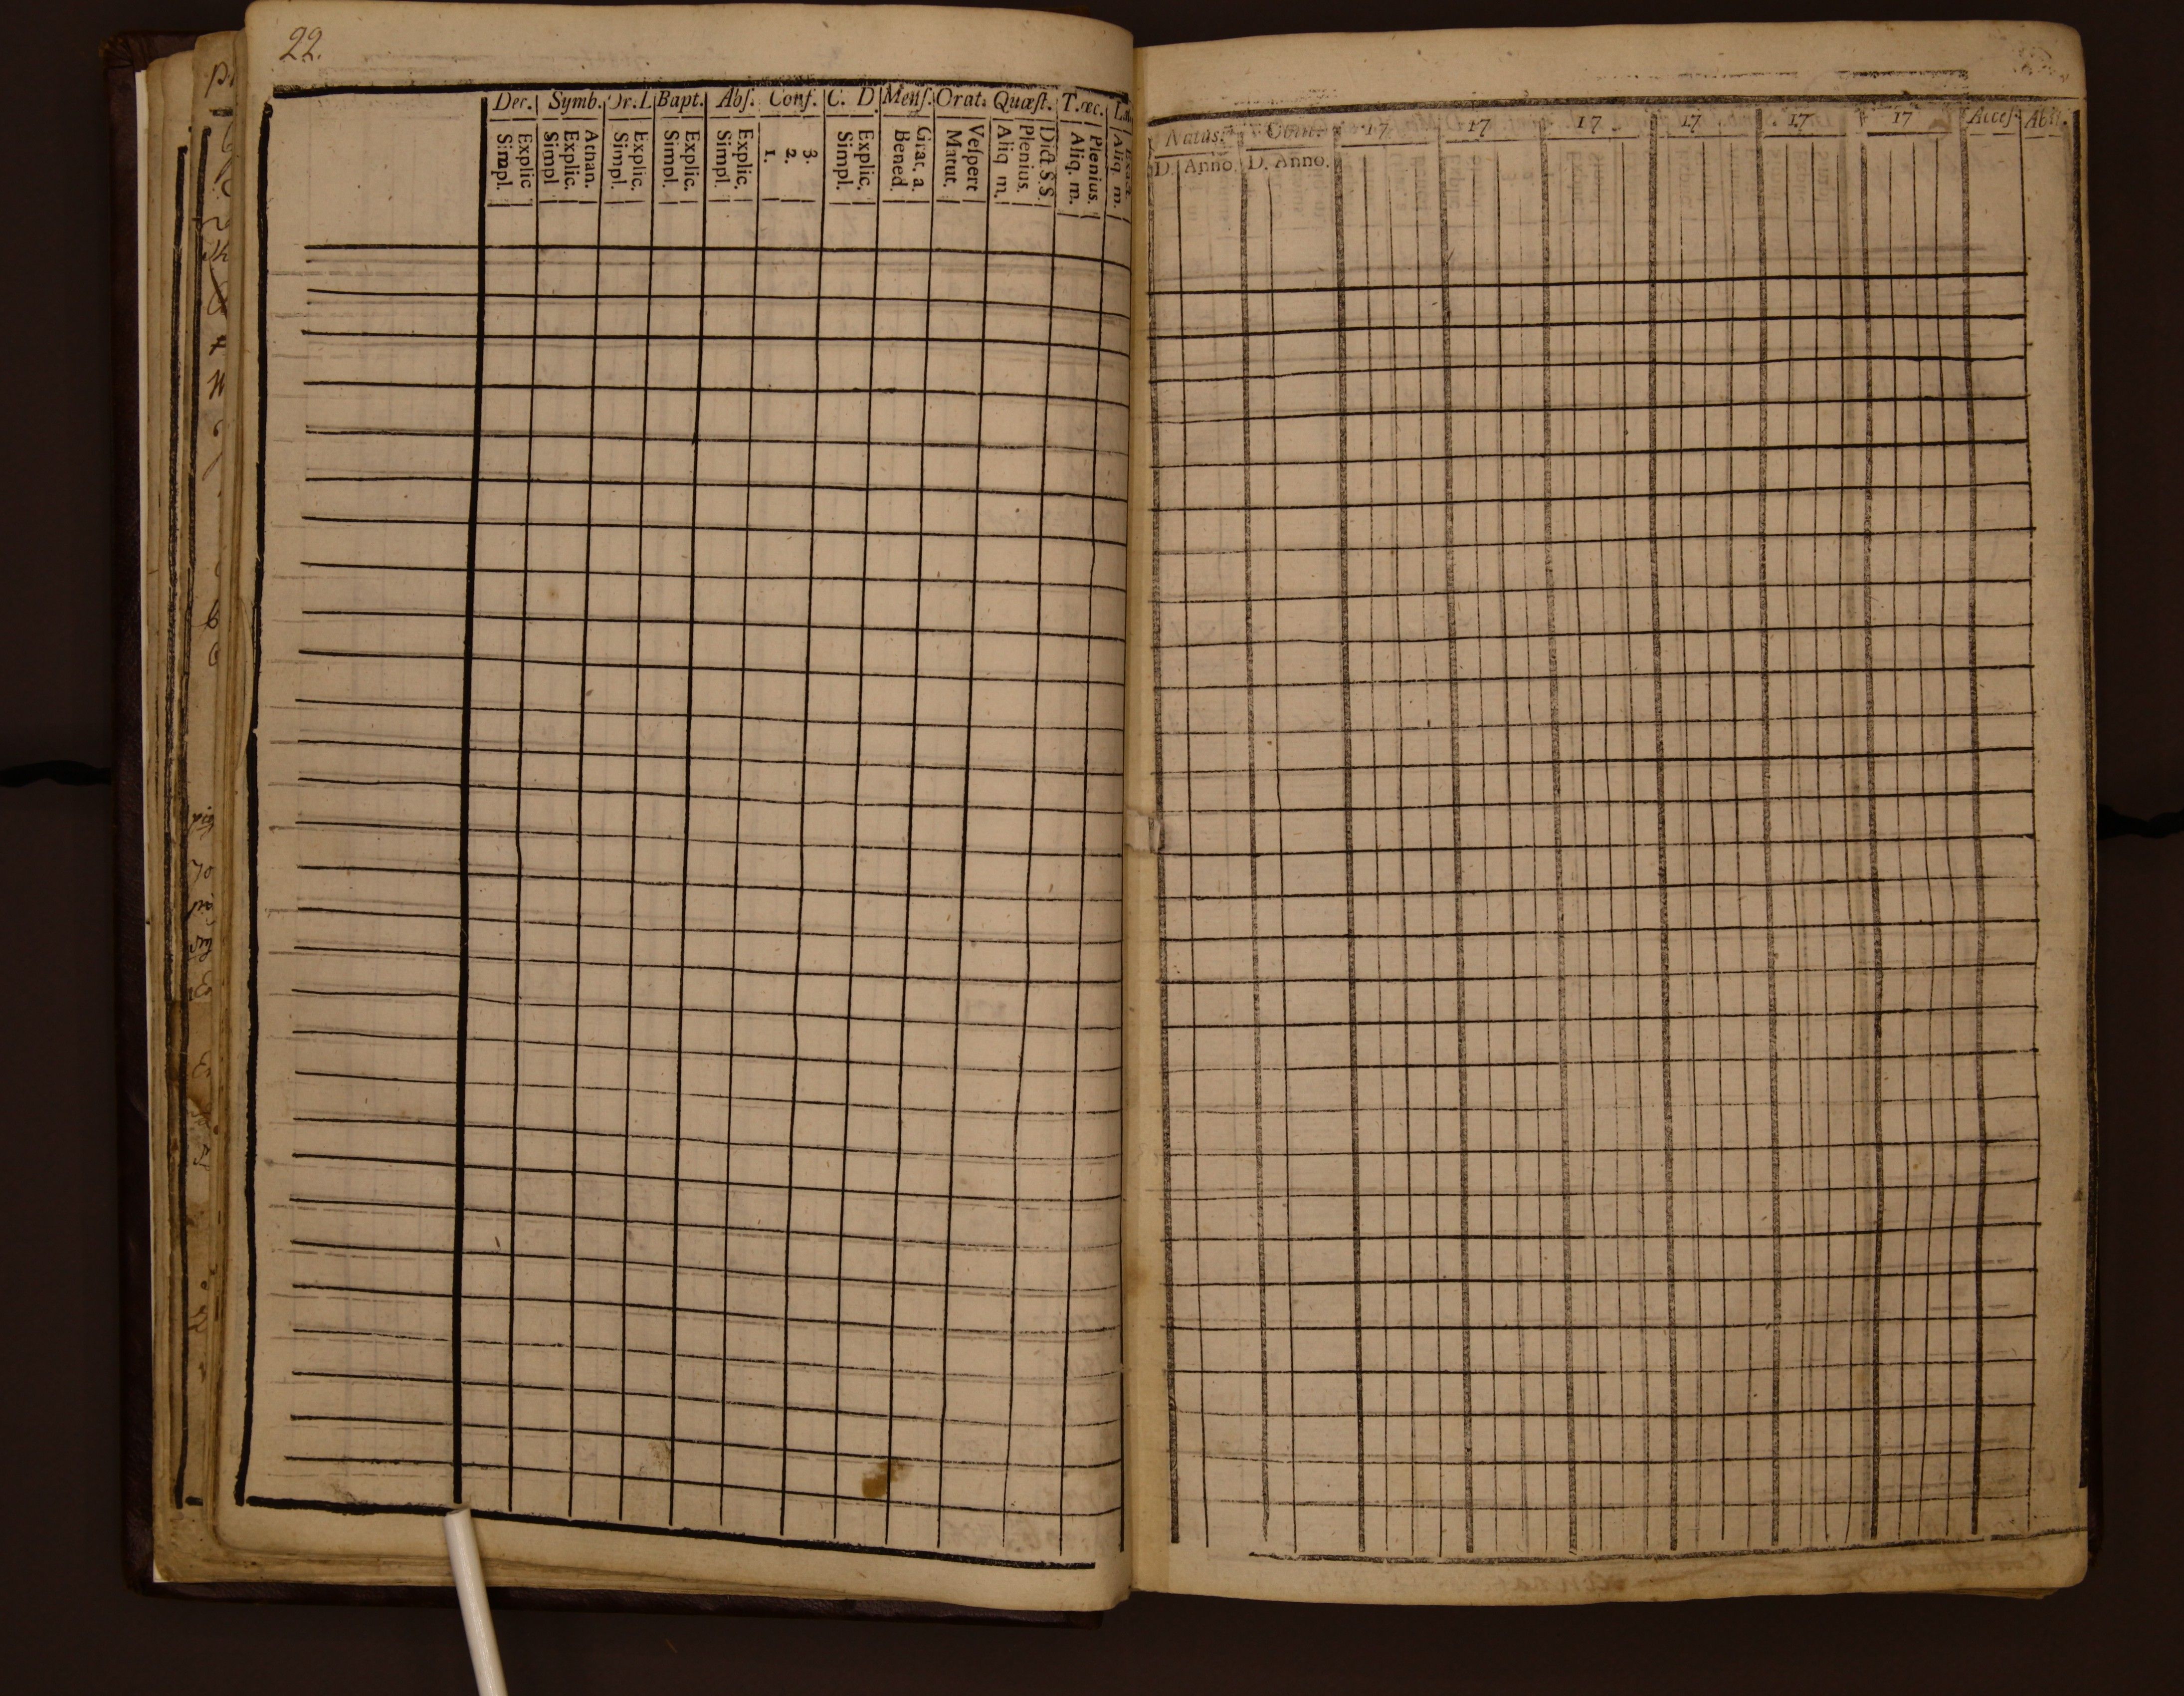 22.
Dec. Symb. Or. L Bapt. Abſ. Conf. C. D. Menſ. Orat. Quæſt. T. œc.
Simpl. Explic
Simpl Explic. Athan.
Simpl. Explic.
Simpl. Explic.
Simpl. Explic.
1. 2. 3.
Simpl. Explic.
Bened. Grat. a.
Matut. Veſpert
Aliq m. Plenius. Dict S.S.
Aliq. m. Plenius.
Aliq. m.
Natus. Obiit. 17 17 17 17 17 17 Acceſ. Abiit.
D. Anno. D. Anno.